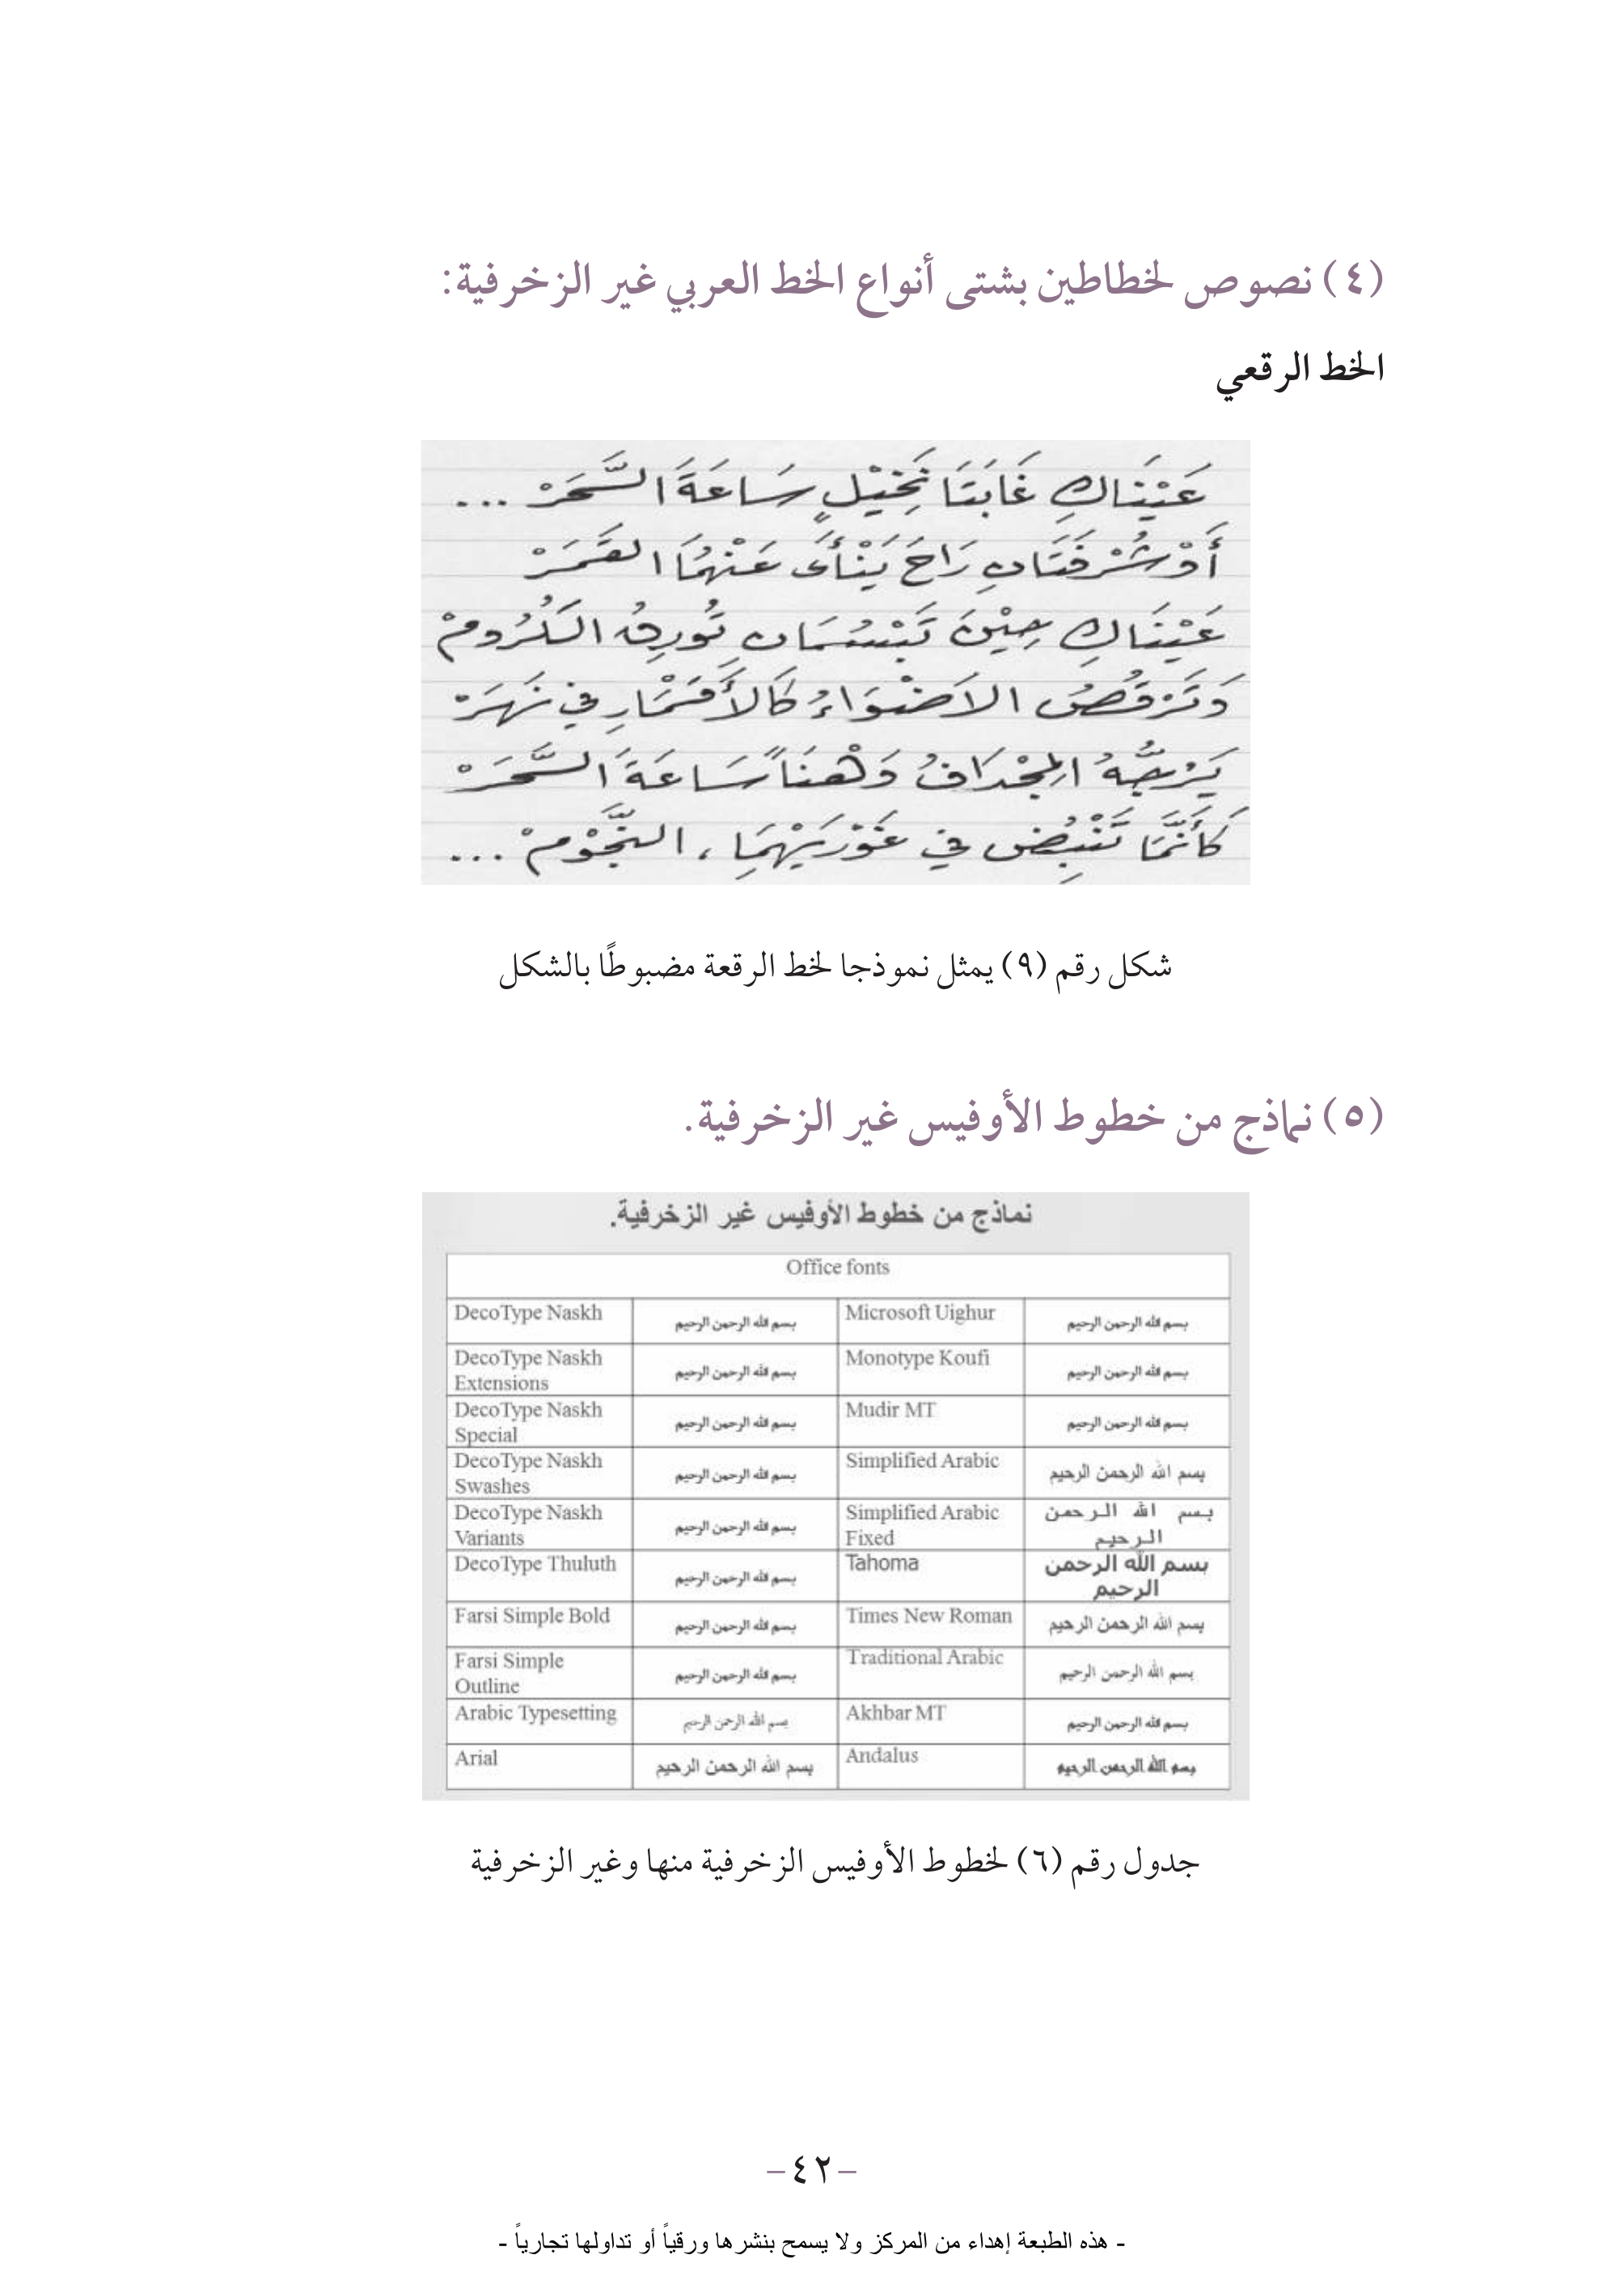 (٤) نصوص لخطاطين بشتى أنواع الخط العربي غير الزخرفية:
الخط الرقعي
عَيْنَاكِ غَابَتَا نَخِيْلٍ سَاعَةَ السَّحَرْ ...
أَوْ شُرْفَتَانِ رَاحَ يَنْأَى عَنْهُمَا القَمَرْ
عَيْنَاكِ حِيْنَ تَبْسُمَانِ تُورِقُ الكُرُومْ
وَتَرْقُصُ الاَضْوَاءُ كَالأَقْمَارِ في نَهَرْ
يَرُجُّهُ المِجْدَافُ وَهْنَاً سَاعَةَ السَّحَرْ
كَأَنَّمَا تَنْبِضُ في غَوْرَيْهِمَا ، النُّجُوْمْ ...
شكل رقم (٩) يمثل نموذجا لخط الرقعة مضبوطًا بالشكل
(٥) نماذج من خطوط الأوفيس غير الزخرفية.
نماذج من خطوط الأوفيس غير الزخرفية.
Office fonts
DecoType Naskh بسم الله الرحمن الرحيم Microsoft Uighur بسم الله الرحمن الرحيم
DecoType Naskh Extensions بسم الله الرحمن الرحيم Monotype Koufi بسم الله الرحمن الرحيم
DecoType Naskh Special بسم الله الرحمن الرحيم Mudir MT بسم الله الرحمن الرحيم
DecoType Naskh Swashes بسم الله الرحمن الرحيم Simplified Arabic بسم الله الرحمن الرحيم
DecoType Naskh Variants بسم الله الرحمن الرحيم Simplified Arabic Fixed بسم الله الرحمن الرحيم
DecoType Thuluth بسم الله الرحمن الرحيم Tahoma بسم الله الرحمن الرحيم
Farsi Simple Bold بسم الله الرحمن الرحيم Times New Roman بسم الله الرحمن الرحيم
Farsi Simple Outline بسم الله الرحمن الرحيم Traditional Arabic بسم الله الرحمن الرحيم
Arabic Typesetting بسم الله الرحمن الرحيم Akhbar MT بسم الله الرحمن الرحيم
Arial بسم الله الرحمن الرحيم Andalus بسم الله الرحمن الرحيم
جدول رقم (٦) لخطوط الأوفيس الزخرفية منها وغير الزخرفية
-٤٢-
- هذه الطبعة إهداء من المركز ولا يسمح بنشرها ورقياً أو تداولها تجارياً -